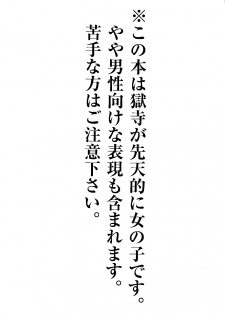 ※この本は獄寺が先天的に女の子です。
やや男性向けな表現も含まれます。
苦手な方はご注意下さい。